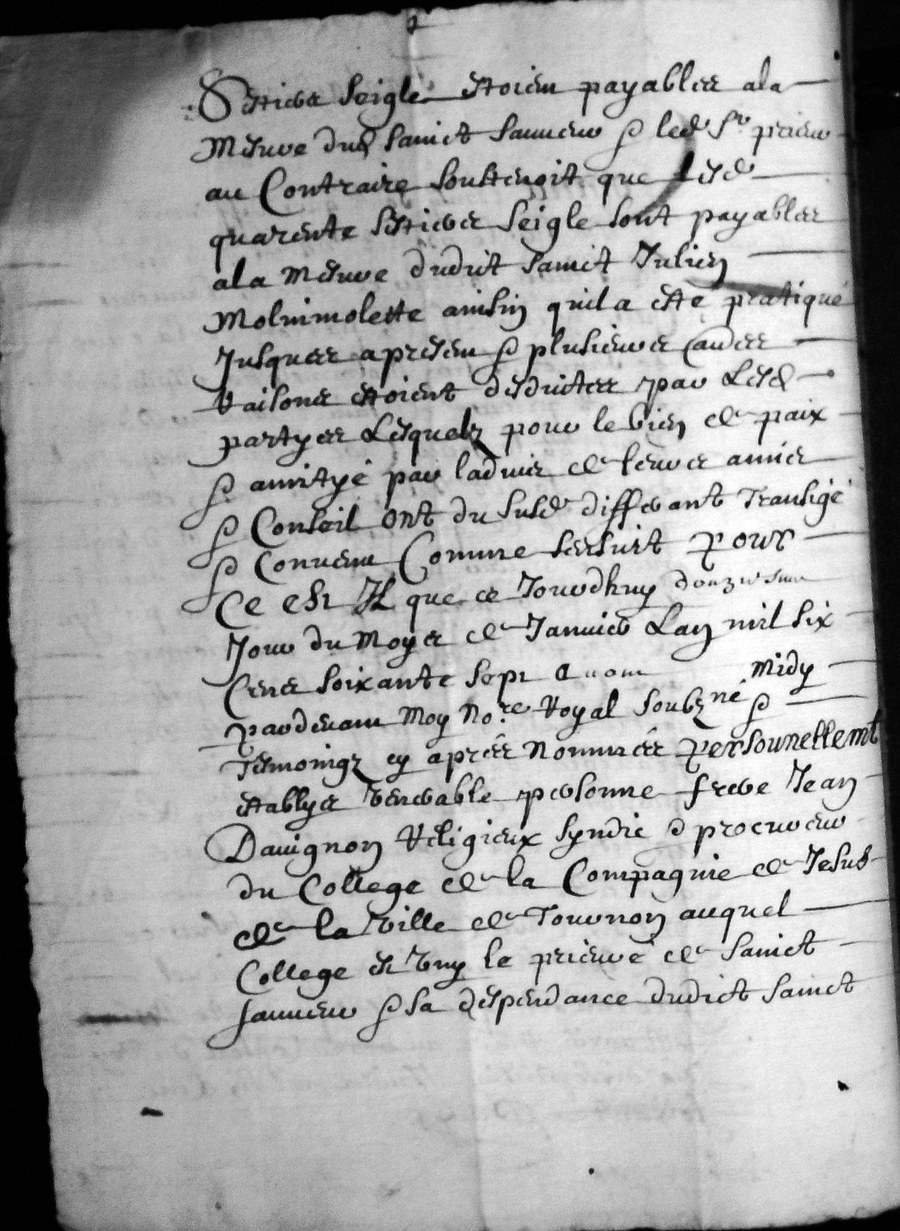 Sestiers seigle estoien payables a la
mesure dud sainct sauveur & led Sr prieur
au Contraire soustenoit que lesd
quarente sestiers seigle sont payables
a la mesure dudit sainct Julien
Molinmolette ainsin quil a esté pratiqué
Jusques a presen & plusieurs autres
Raisons estoient desduites par Lesd
partyes Lesquelz pour le bien de paix
& amityé par ladvis de leurs amis
& Conseil ont du susd differant Transigé
& Convenu Comme sensuit Pour
Ce est Il que ce Jourdhuy douziesme
Jour du Moys de Janvier Lan mil six
Cens soixante sept avant midy
pardevant Moy Nore Royal soubzné &
Tesmoingz cy aprés Nommés personnellemt
establys venerable personne frere Jean
Davignon Religieux syndic & procureur
du College de la Compagnie de Jesus
de la Ville de Tournon auquel
College est Uny le prieuré de Sainct
sauveur & sa despendance dudict Sainct